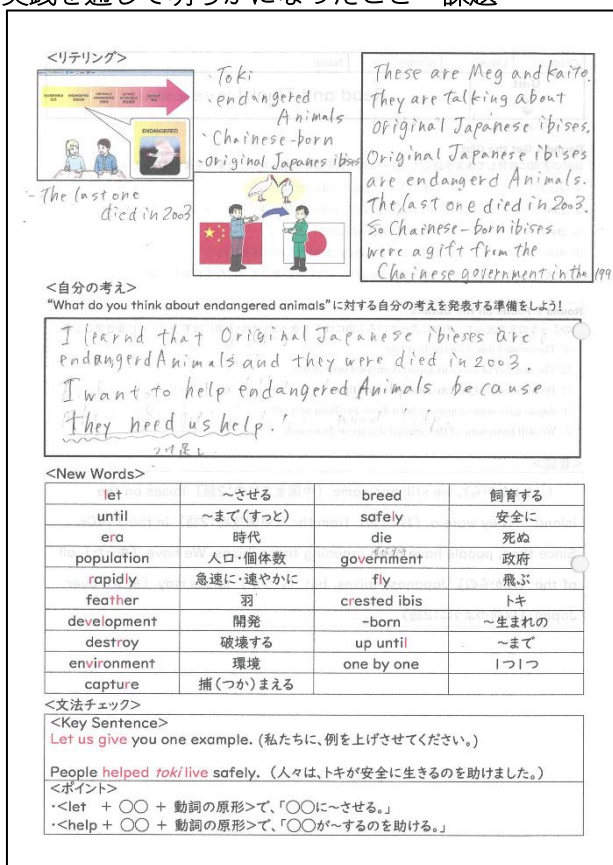 実践を通して明らかになったこと・課題
<リテリング>
ENDANGERED
・Toki
・endangered
Animals
・Chainese-born
・original Japanes ibises
- The last one
died in 2003
These are Meg and kaito.
They are talking about
original Japanese ibises.
Original Japanese ibises
are endangerd Animals.
The last one died in 2003.
So Chainese-born ibises
were a gift from the
Chainese government in the 199
<自分の考え>
"What do you think about endangered animals"に対する自分の考えを発表する準備をしよう!
I learnd that Original Japanese ibieses are
endangerd Animals and they were died in 2003.
I want to help endangered Animals because
they need us help.
つけ足し
<New Words>
let ~させる breed 飼育する
until ~まで(ずっと) safely 安全に
era 時代 die 死ぬ
population 人口・個体数 government 政府
rapidly 急速に・速やかに fly 飛ぶ
feather 羽 crested ibis トキ
development 開発 -born ~生まれの
destroy 破壊する up until ~まで
environment 環境 one by one 1つ1つ
capture 捕(つか)まえる
<文法チェック>
<Key Sentence>
Let us give you one example. (私たちに、例を上げさせてください。)
People helped toki live safely. (人々は、トキが安全に生きるのを助けました。)
<ポイント>
・<let + ○○ + 動詞の原形>で、「○○に~させる。」
・<help + ○○ + 動詞の原形>で、「○○が~するのを助ける。」